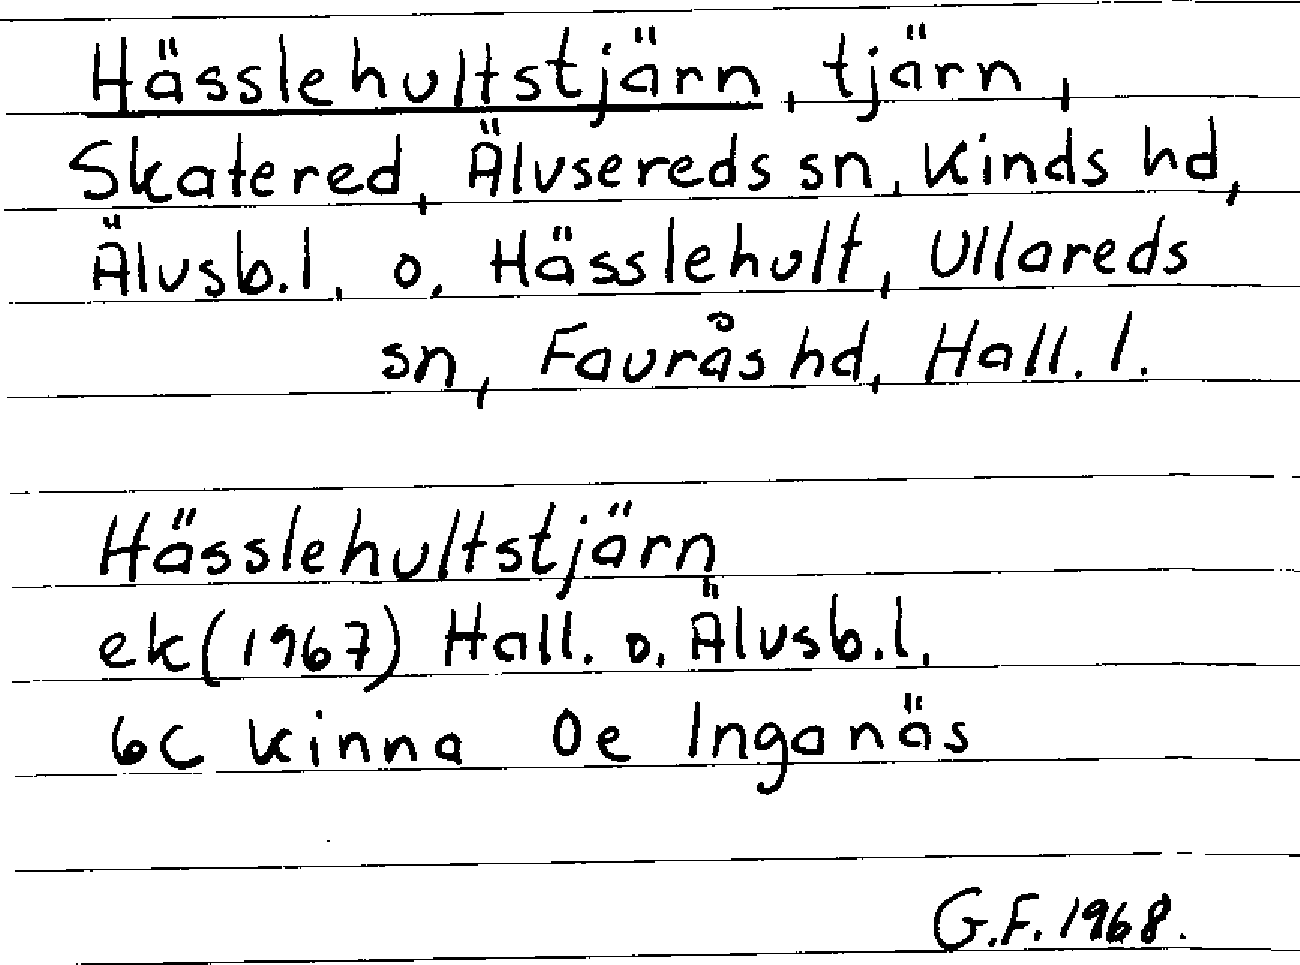 Hässlehultstjärn, tjärn,
Skatered, Älvsereds sn, Kinds hd,
Älvsb.l. o. Hässlehult, Ullareds
sn, Faurås hd, Hall. l.
Hässlehultstjärn
ek (1967) Hall. o. Älvsb.l.
6C Kinna 0e Inganäs
G.F. 1968.